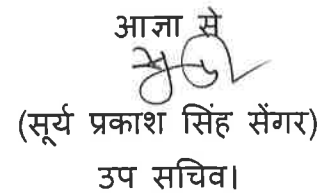 आज्ञा से
(सूर्य प्रकाश सिंह सेंगर)
उप सचिव।